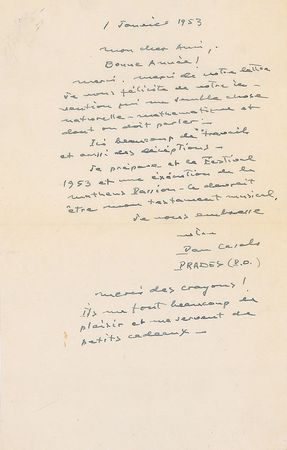 1 Janvier 1953
Mon cher Ami,
Bonne Année!
Merci, merci de votre lettre
Je vous félicite de votre in-
vention qui me semble chose
naturelle - mathématique et
dont on doit parler -
Ici beaucoup de travail
et aussi des déceptions -
Je prépare et le Festival
1953 et une éxécution de la
Matheus Passion - Ce devrait
être mon testament musical.
Je vous embrasse
votre
Pau Casals
PRADES (P.O.)
Merci des crayons!
Ils me font beaucoup de
plaisir et me servent de
petits cadeaux -